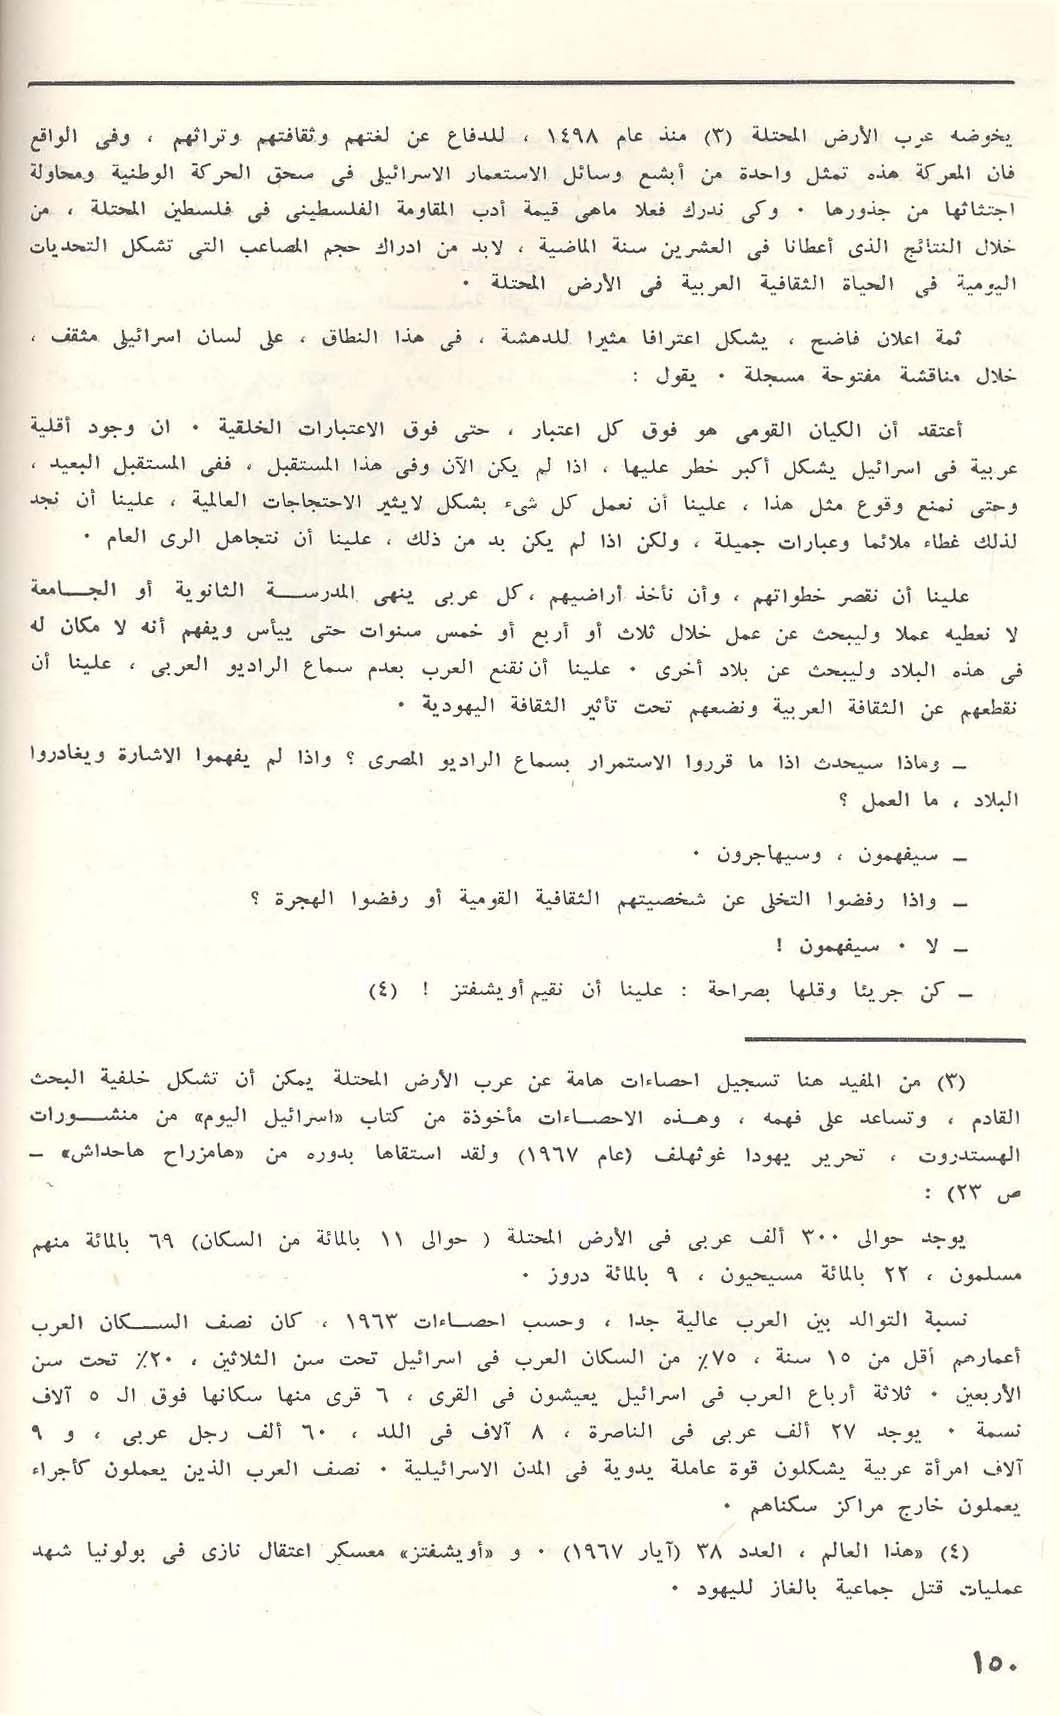 يخوضه عرب الأرض المحتلة (٣) منذ عام ١٤٩٨ ، للدفاع عن لغتهم وثقافتهم وتراثهم ، وفى الواقع
فان المعركة هذه تمثل واحدة من أبشع وسائل الاستعمار الاسرائيلى فى سحق الحركة الوطنية ومحاولة
اجتثاثها من جذورها ٠ وكى ندرك فعلا ماهى قيمة أدب المقاومة الفلسطينى فى فلسطين المحتلة ، من
خلال النتائج الذى أعطانا فى العشرين سنة الماضية ، لابد من ادراك حجم المصاعب التى تشكل التحديات
اليومية فى الحياة الثقافية العربية فى الأرض المحتلة ٠
ثمة اعلان فاضح ، يشكل اعترافا مثيرا للدهشة ، فى هذا النطاق ، على لسان اسرائيلى مثقف ،
خلال مناقشة مفتوحة مسجلة ٠ يقول :
أعتقد أن الكيان القومى هو فوق كل اعتبار ، حتى فوق الاعتبارات الخلقية ٠ ان وجود أقلية
عربية فى اسرائيل يشكل أكبر خطر عليها ، اذا لم يكن الآن وفى هذا المستقبل ، ففى المستقبل البعيد ،
وحتى نمنع وقوع مثل هذا ، علينا أن نعمل كل شىء بشكل لايثير الاحتجاجات العالمية ، علينا أن نجد
لذلك غطاء ملائما وعبارات جميلة ، ولكن اذا لم يكن بد من ذلك ، علينا أن نتجاهل الرى العام ٠
علينا أن نقصر خطواتهم ، وأن نأخذ أراضيهم ، كل عربى ينهى المدرســة الثانوية أو الجــامعة
لا نعطيه عملا وليبحث عن عمل خلال ثلاث أو أربع أو خمس سنوات حتى ييأس ويفهم أنه لا مكان له
فى هذه البلاد وليبحث عن بلاد أخرى ٠ علينا أن نقنع العرب بعدم سماع الراديو العربى ، علينا أن
نقطعهم عن الثقافة العربية ونضعهم تحت تأثير الثقافة اليهودية ٠
ــ وماذا سيحدث اذا ما قرروا الاستمرار بسماع الراديو المصرى ؟ واذا لم يفهموا الاشارة ويغادروا
البلاد ، ما العمل ؟
ــ سيفهمون ، وسيهاجرون ٠
ــ واذا رفضوا التخلى عن شخصيتهم الثقافية القومية أو رفضوا الهجرة ؟
ــ لا ٠ سيفهمون !
ــ كن جريئا وقلها بصراحة : علينا أن نقيم أويشفتز ! (٤)
(٣) من المفيد هنا تسجيل احصاءات هامة عن عرب الأرض المحتلة يمكن أن تشكل خلفية البحث
القادم ، وتساعد على فهمه ، وهـذه الاحصـاءات مأخوذة من كتاب «اسرائيل اليوم» من منشــورات
الهستدروت ، تحرير يهودا غوثهلف (عام ١٩٦٧) ولقد استقاها بدوره من «هامزراح هاحداش» ــ
ص ٢٣) :
يوجد حوالى ٣٠٠ ألف عربى فى الأرض المحتلة ( حوالى ١١ بالمائة من السكان) ٦٩ بالمائة منهم
مسلمون ، ٢٢ بالمائة مسيحيون ، ٩ بالمائة دروز ٠
نسبة التوالد بين العرب عالية جدا ، وحسب احصـاءات ١٩٦٣ ، كان نصف الســكان العرب
أعمارهم أقل من ١٥ سنة ، ٧٥٪ من السكان العرب فى اسرائيل تحت سن الثلاثين ، ٢٠٪ تحت سن
الأربعين ٠ ثلاثة أرباع العرب فى اسرائيل يعيشون فى القرى ، ٦ قرى منها سكانها فوق ال ٥ آلاف
نسمة ٠ يوجد ٢٧ ألف عربى فى الناصرة ، ٨ آلاف فى اللد ، ٦٠ ألف رجل عربى ، و ٩
آلاف امرأة عربية يشكلون قوة عاملة يدوية فى المدن الاسرائيلية ٠ نصف العرب الذين يعملون كأجراء
يعملون خارج مراكز سكناهم ٠
(٤) «هذا العالم ، العدد ٣٨ (آيار ١٩٦٧) ٠ و «أويشفتز» معسكر اعتقال نازى فى بولونيا شهد
عمليات قتل جماعية بالغاز لليهود ٠
١٥٠